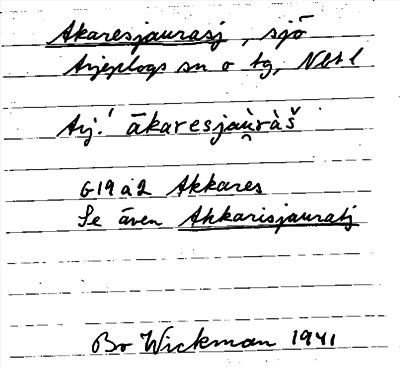 Akaresjaurasj, sjö
Arjeplogs sn o tg, Nbt l
Arj.! ākaresjau̯ràš
G19 à2 Akkares
Se även Akkarisjauratj
Bo Wickman 1941